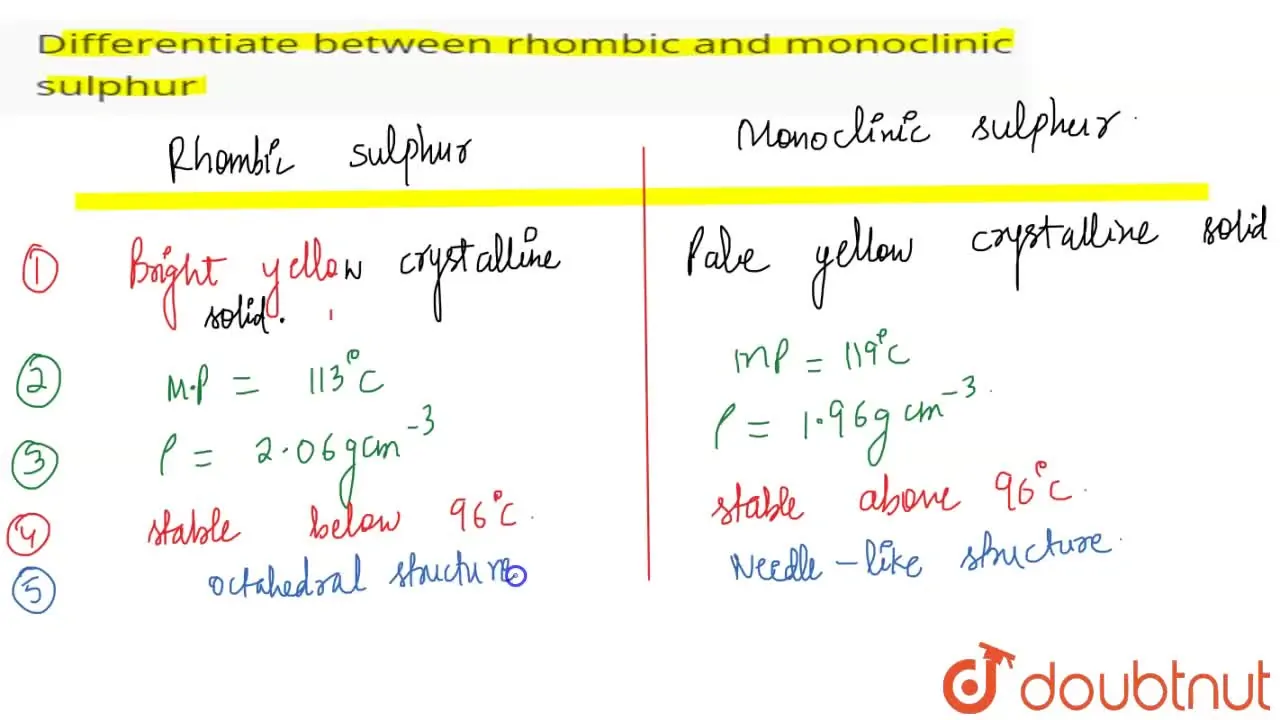 Differentiate between rhombic and monoclinic
sulphur
Rhombic sulphur
Monoclinic sulphur.
① Bright yellow crystalline
solid.
Pale yellow crystalline solid
② M.P = 113°C
mp = 119°C
③ ρ = 2.06gcm⁻³
ρ = 1.96g cm⁻³.
④ stable below 96°C.
stable above 96°C.
⑤ octahedral structure
Needle-like structure.
doubtnut